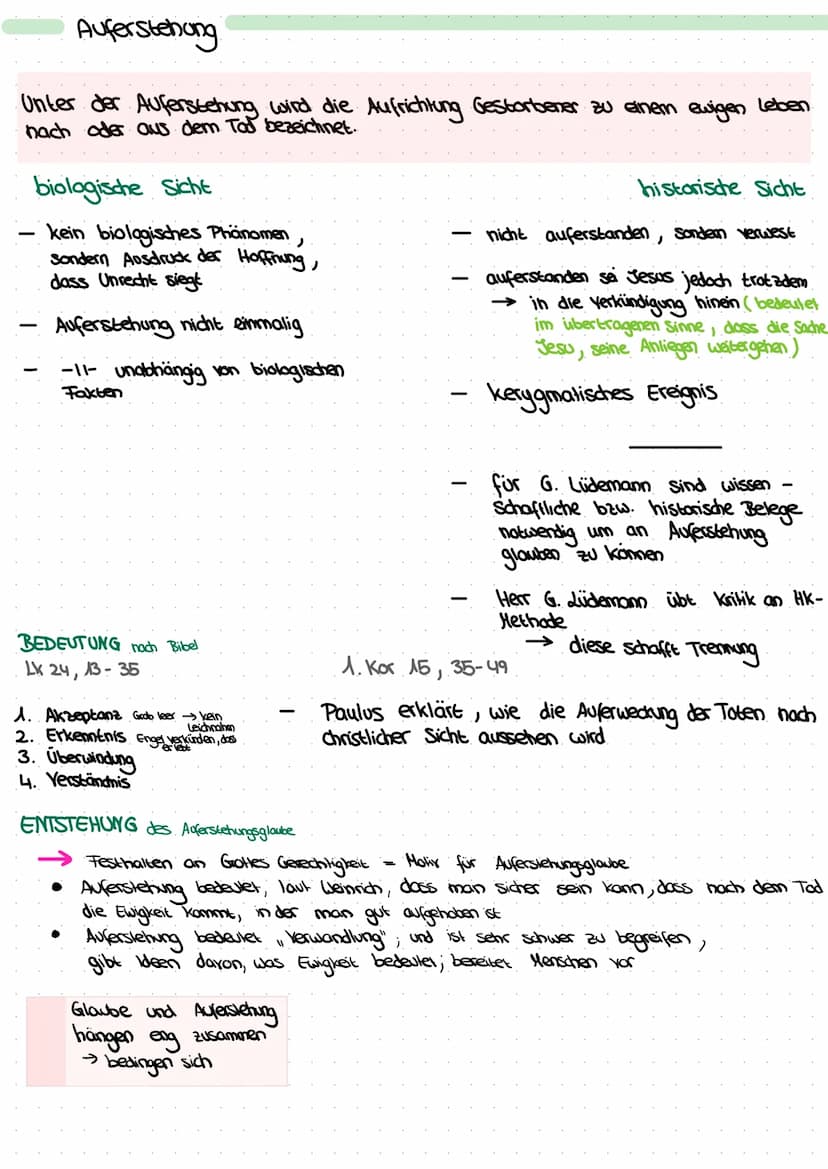 Auferstehung
Unter der Auferstehung wird die Aufrichtung Gestorbener zu einem ewigen Leben
nach oder aus dem Tod bezeichnet.
biologische Sicht
- kein biologisches Phänomen,
sondern Ausdruck der Hoffnung,
dass Unrecht siegt
- Auferstehung nicht einmalig
- -||- unabhängig von biologischen
Fakten
historische Sicht
- nicht auferstanden, sondern verwest
- auferstanden sei Jesus jedoch trotzdem
→ in die Verkündigung hinein (bedeutet
im übertragenen Sinne, dass die Sache
Jesu, seine Anliegen weitergehen)
- kerygmatisches Ereignis
- für G. Lüdemann sind wissen-
schaftliche bzw. historische Belege
notwendig um an Auferstehung
glauben zu können
- Herr G. Lüdemann übt Kritik an HK-
Methode
→ diese schafft Trennung
BEDEUTUNG nach Bibel
Lk 24, 13-35
1. Akzeptanz Grab leer → kein
Leichnahm
2. Erkenntnis Engel verkünden, dass
er lebt
3. Überwindung
4. Verständnis
1. Kor 15, 35-49
- Paulus erklärt, wie die Auferweckung der Toten nach
christlicher Sicht aussehen wird
ENTSTEHUNG des Auferstehungsglaube
→ Festhalten an Gottes Gerechtigkeit = Motiv für Auferstehungsglaube
• Auferstehung bedeutet, laut Weinrich, dass man sicher sein kann, dass nach dem Tod
die Ewigkeit kommt, in der man gut aufgehoben ist
• Auferstehung bedeutet „Verwandlung", und ist sehr schwer zu begreifen,
gibt Ideen davon, was Ewigkeit bedeutet; bereitet Menschen vor
Glaube und Auferstehung
hängen eng zusammen
→ bedingen sich